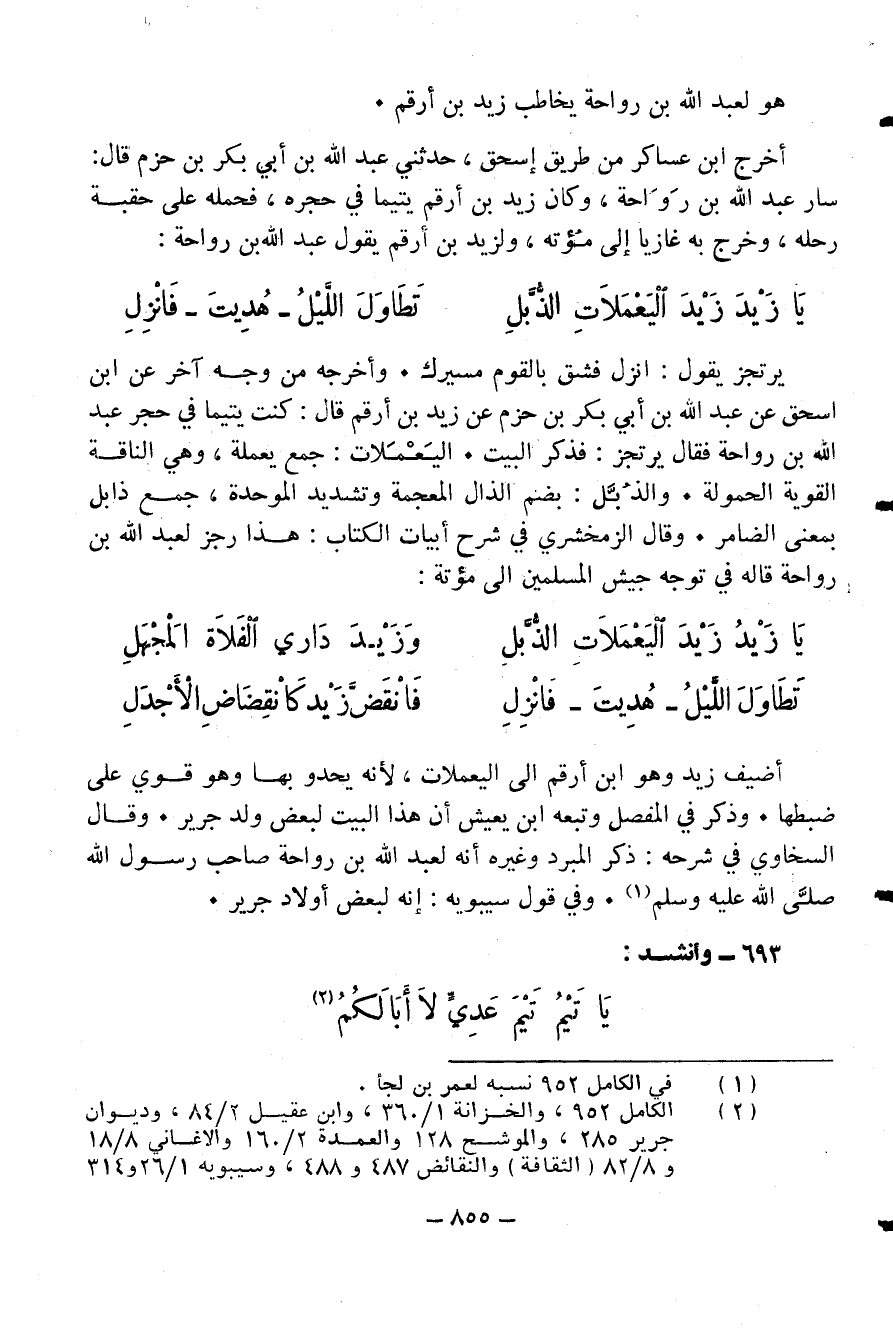 هو لعبد الله بن رواحة يخاطب زيد بن أرقم ٠
أخرج ابن عساكر من طريق إسحق ، حدثني عبد الله بن أبي بكر بن حزم قال:
سار عبد الله بن رَوَاحة ، وكان زيد بن أرقم يتيما في حجره ، فحمله على حقبة
رحله ، وخرج به غازيا إلى مُؤته ، ولزيد بن أرقم يقول عبد الله بن رواحة :
يَا زَيْدَ زَيْدَ ٱلْيَعْمَلَاتِ الذُّبَّلِ تَطَاوَلَ اللَّيْلُ ـ هُدِيتَ ـ فَانْزِلِ
يرتجز يقول : انزل فشق بالقوم مسيرك ٠ وأخرجه من وجه آخر عن ابن
اسحق عن عبد الله بن أبي بكر بن حزم عن زيد بن أرقم قال : كنت يتيما في حجر عبد
الله بن رواحة فقال يرتجز : فذكر البيت ٠ اليَعْمَلات : جمع يعملة ، وهي الناقة
القوية الحمولة ٠ والذُبَّل : بضم الذال المعجمة وتشديد الموحدة ، جمع ذابل
بمعنى الضامر ٠ وقال الزمخشري في شرح أبيات الكتاب : هذا رجز لعبد الله بن
رواحة قاله في توجه جيش المسلمين الى مؤتة :
يَا زَيْدُ زَيْدَ ٱلْيَعْمَلَاتِ الذُّبَّلِ وَزَيْدَ دَارِي ٱلْفَلَاةِ ٱلْمُجْهَلِ
تَطَاوَلَ اللَّيْلُ ـ هُدِيتَ ـ فَانْزِلِ فَانْقَضَّ زَيْد كَانْقِضَاضِ الْأَجْدَلِ
أضيف زيد وهو ابن أرقم الى اليعملات ، لأنه يحدو بها وهو قوي على
ضبطها ٠ وذكر في المفصل وتبعه ابن يعيش أن هذا البيت لبعض ولد جرير ٠ وقال
السخاوي في شرحه : ذكر المبرد وغيره أنه لعبد الله بن رواحة صاحب رسول الله
صلَّى الله عليه وسلم(١) ٠ وفي قول سيبويه : إنه لبعض أولاد جرير ٠
٦٩٣ ـ وأنشد :
يَا تَيْمُ تَيْمَ عَدِيٍّ لَا أَبَا لَكُمُ(٢)
(١) في الكامل ٩٥٢ نسبه لعمر بن لجأ .
(٢) الكامل ٩٥٢ ، والخزانة ٣٦٠/١ ، وابن عقيل ٨٤/٢ ، وديوان
جرير ٢٨٥ ، والموشح ١٢٨ والعمدة ١٦٠/٢ والاغاني ١٨/٨
و ٨٢/٨ (الثقافة) والنقائض ٤٨٧ و ٤٨٨ ، وسيبويه ٢٦/١ و٣١٤
ـ ٨٥٥ ـ